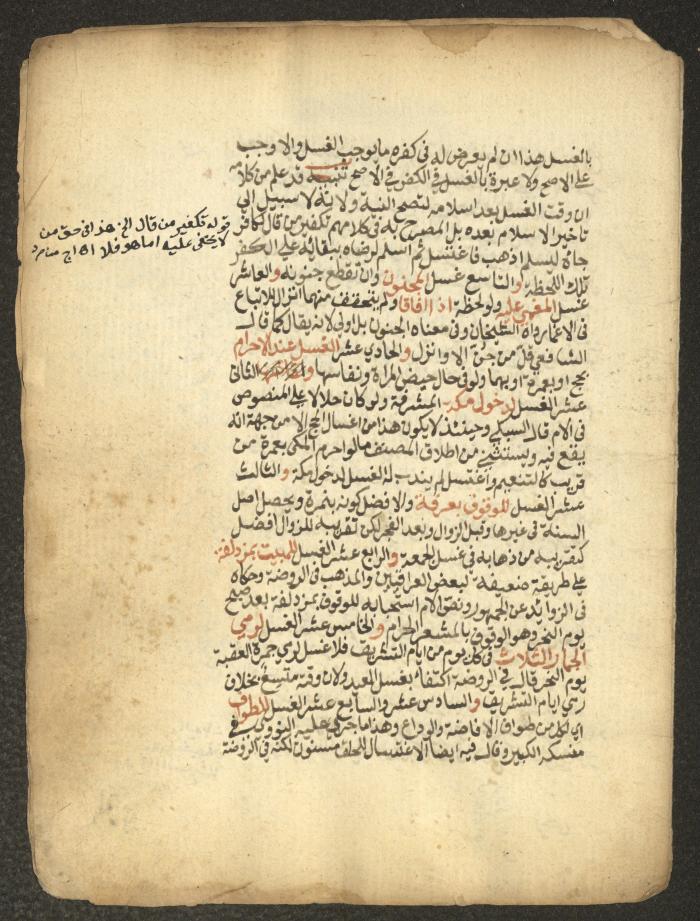 بالغسل هذا ان لم يعرض له في كفره ما يوجب الغسل والا وجب
على الاصح ولا عبرة بالغسل في الكفر في الاصح تنبيه قد علم من كلامه
ان وقت الغسل بعد اسلامه لتصح النية ولانه لا سبيل الى
تاخير الاسلام بعده بل المصرح به في كلامهم تكفير من قال لكافر
جاه ليسلم اذهب فاغتسل ثم اسلم لرضاه ببقائه على الكفر
تلك اللحظة والتاسع غسل المجنون وان تقطع جنونه والعاشر
غسل المغمى عليه ولو لحظة اذا افاقا ولم يتحقق منهما انزال للاتباع
في الاغماء رواه الشيخان وفي معناه الجنون بل اولى لانه يقال كما قال
الشافعي قل من جن الا وانزل والحادي عشر الغسل عند الاحرام
بحج او بعمرة او بهما ولو في حال حيض المراة ونفاسها الثاني
عشر الغسل لدخول مكة المشرفة ولو كان حلالا على المنصوص
في الام قال السبكي وحينئذ لا يكون هذا من اغسال الحج الا من جهة انه
يقع فيه ويستثنى من اطلاق المصنف ما لو احرم المكي بعمرة من
قريب كالتنعيم واغتسل لم يندب له الغسل لدخول مكة والثالث
عشر الغسل للوقوف بعرفة والافضل كونه بنمرة ويحصل اصل
السنة في غيرها وقبل الزوال وبعد الفجر لكن تقريبه للزوال افضل
كتقريبه من ذهابه في غسل الجمعة والرابع عشر الغسل للمبيت بمزدلفة
على طريقة ضعيفة لبعض العراقيين والمذهب في الروضة وحكاه
في الزوائد عن الجمهور ونص الام استحبابه للوقوف بمزدلفة بعد صبح
يوم النحر وهو الوقوف بالمشعر الحرام والخامس عشر الغسل لرمي
الجمار الثلاث في كل يوم من ايام التشريق فلا غسل لرمي جمرة العقبة
يوم النحر قال في الروضة اكتفاء بغسل العيد ولان وقته متسع بخلاف
رمي ايام التشريق والسادس عشر والسابع عشر الغسل للطواف
اي لكل من طواف الافاضة والوداع وهذا ما جرى عليه النووي في
منسكه الكبير وقال فيه ايضا الاغتسال للحلق مسنون لكنه في الروضة
قوله تكفير من قال الخ هذا في حق من
لا يخفى عليه اما هو فلا